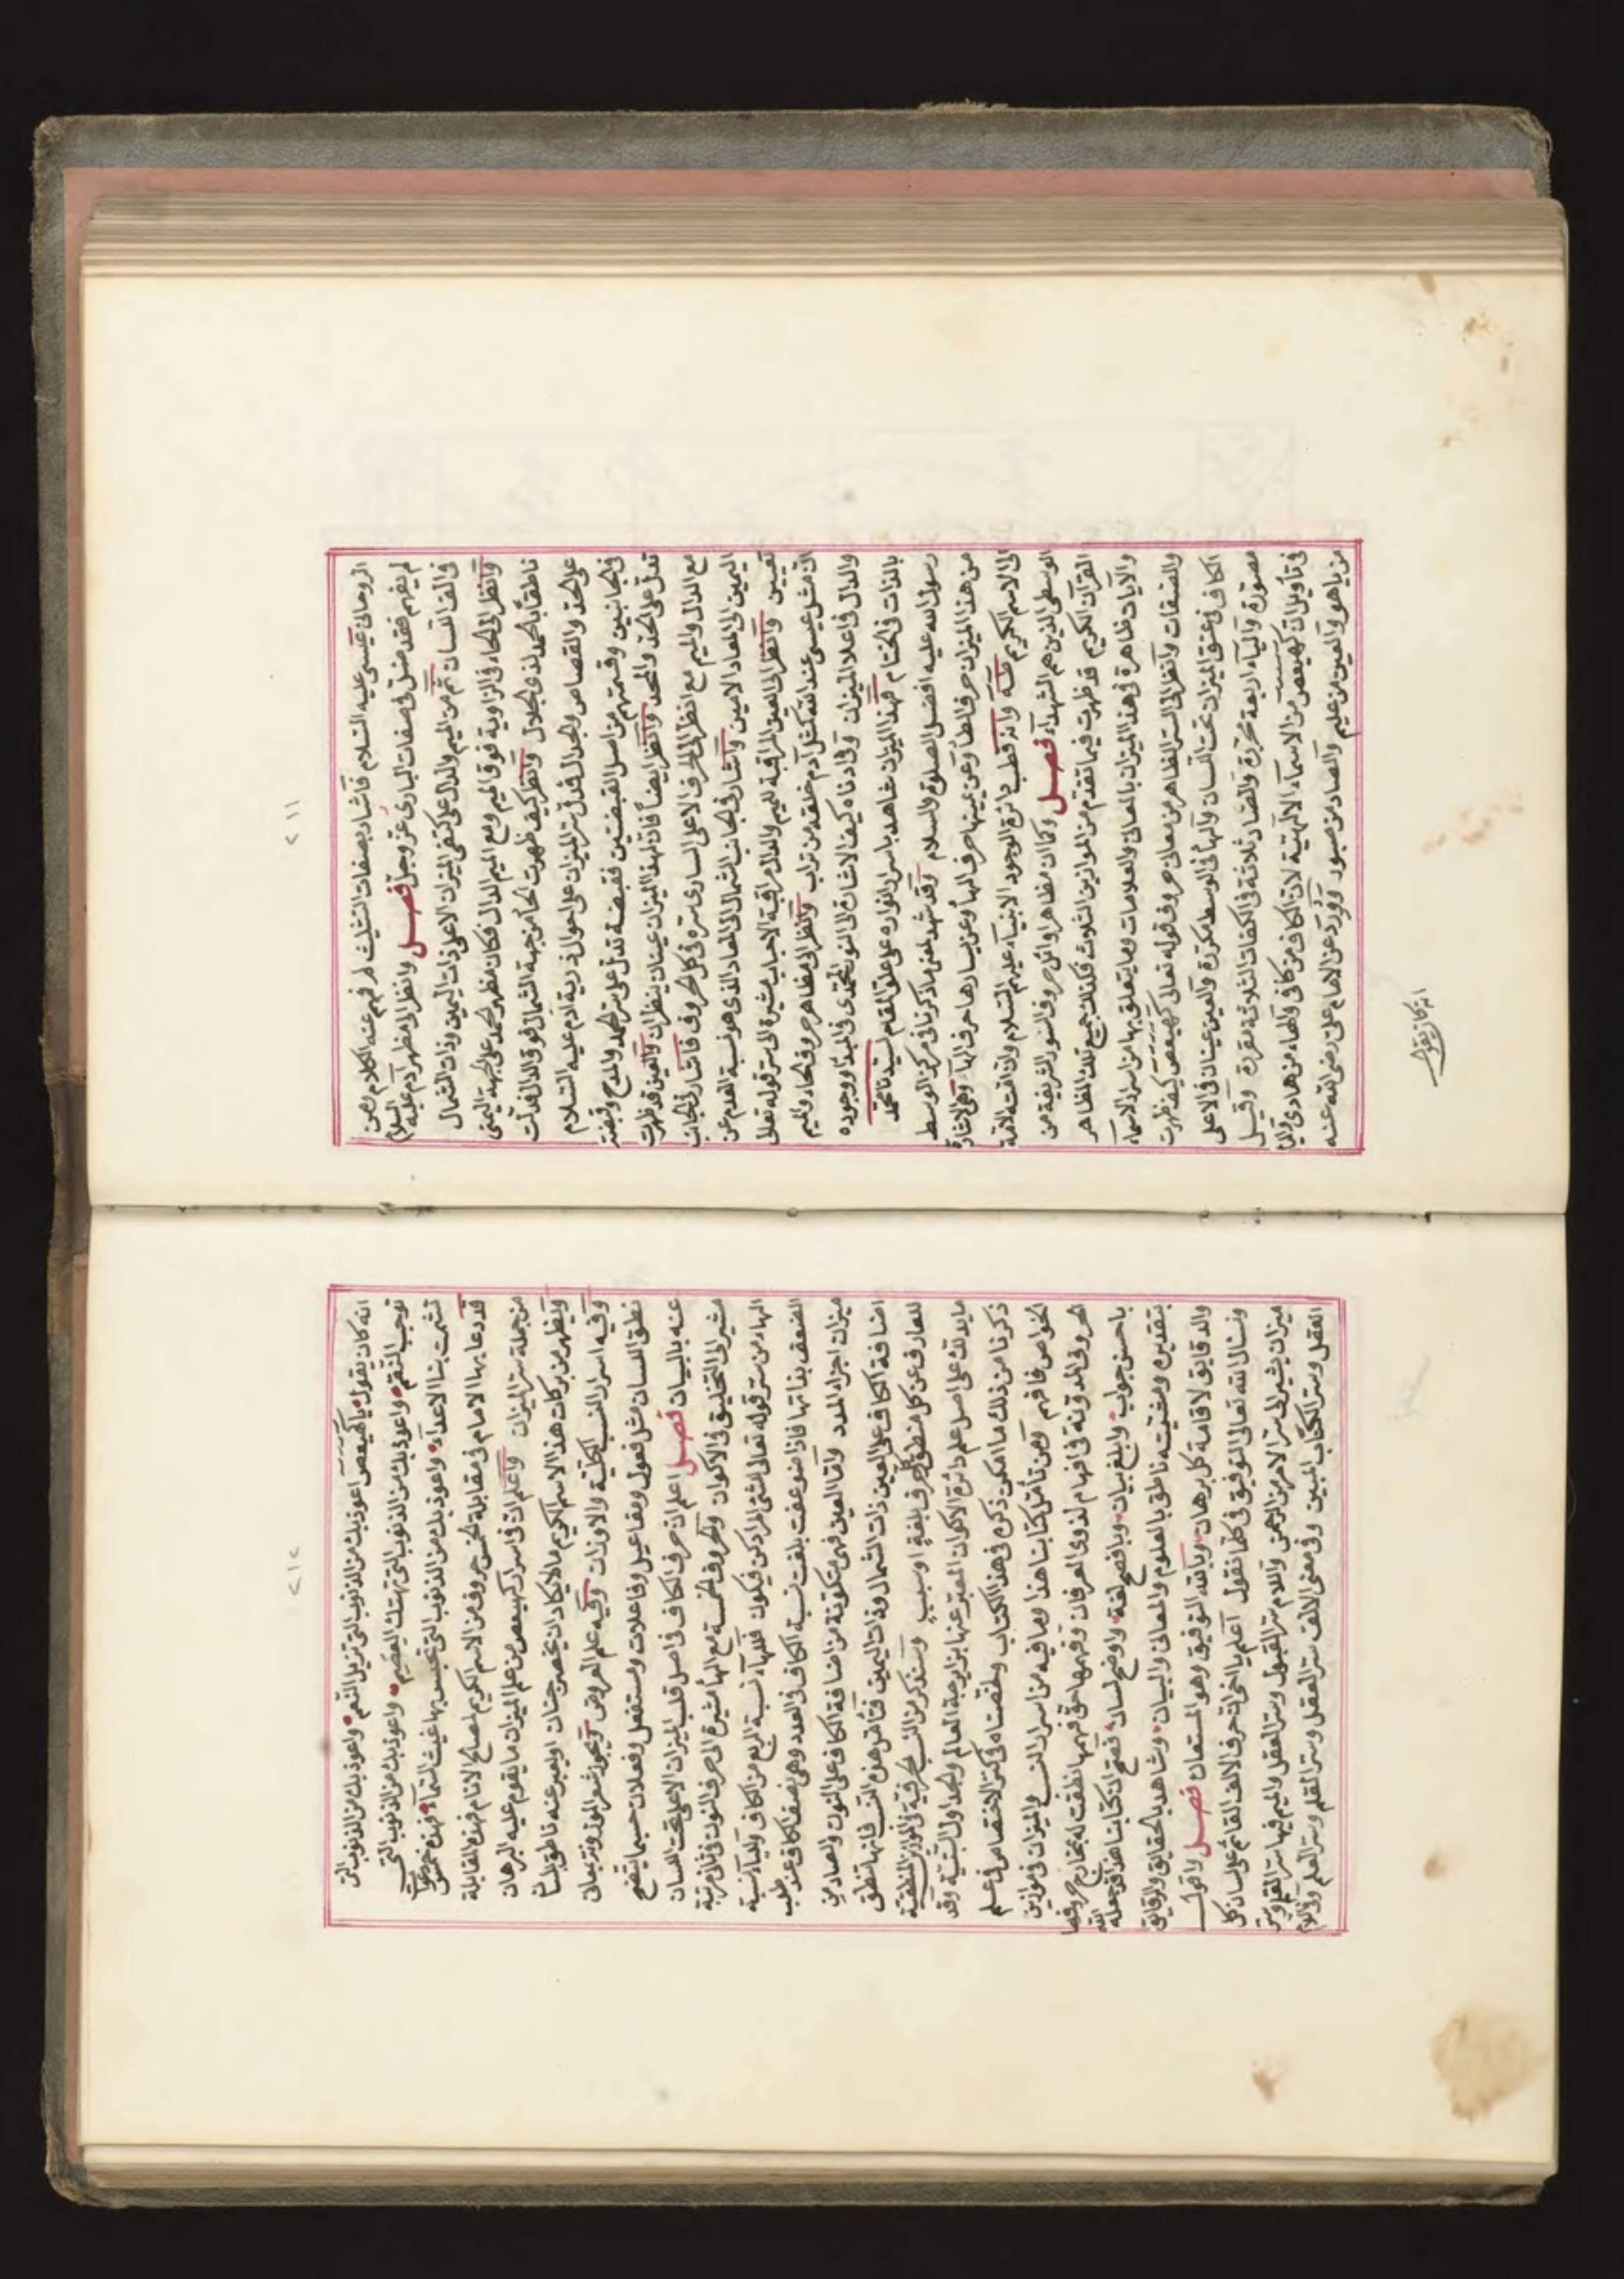 ٢١١
الروحاني عيسى عليه السلام فأشار بصفات التثليث لمن فهم عنه الكلام ومن
لم يفهم فقد ضل في صفات الباري عز وجل فصل وانظر الى مظهر آدم عليه السلام
في الف اللسان ثم من الميم والدال على كتفي الميزان الاعلى ذات اليمين وذات الشمال
وانظر الى الحاء في الزاوية فوق الميم ومع الميم الدال فكان مظهر الحمد على الجهة اليمنى
ناطقاً بالحمد لذي الجلال وانظر كيف ظهرت الحاء من جهة الشمال فوق الدال فدلت
على الحد والقصاص والجدال فدل سر الميزان على احوال ذرية آدم عليه السلام
في الجانبين وقسمتهم من اصل القبضتين فقبضة تدل على سر الحمد والمدح وقبضة
تدل على الحد والجحد وانظر ايضاً فان لهذا الميزان عينان ينظران والعين قد ظهرت
مع الدال والميم مع انظر الى الحرف الاعلى الساري سره في كل الحروف فأشار في الجانب
اليمين الى المعاد الامين واشار في الجانب الشمال الى المعاد الذي هو نسبة العدم عن
تعيين وانظر الى العين المراقبة للميم والدال مراقبة الاحباب مشيرة الى سر قوله تعالى
ان مثل عيسى عند الله كمثل آدم خلقه من تراب وانظر الى مظاهر حروف الحاء والميم
والدال في اعلا الميزان وفي ادناه كيف الاشارة الى النور المحمدي في المبدا ووجوده
بالذات في الختام فهذا الميزان شاهد باسرار انواره على علو المقام لسيدنا محمد
رسول الله عليه افضل الصلوة والسلام وقد شهد لمعنى ما ذكرنا في مركز الوسط
من هذا الميزان حرف الطا وعن يمينها حرف الها وعن يسارها حرف الهاء وهي الاشارة
الى الاسم الكريم طه وانه قطب دائرة الوجود الانبياء عليهم السلام وان امته الامة
الوسطى الذين هم الشهداء فصل وكما ان مظاهر اوائل حروف السور الشريفة من
القرآن الكريم قد ظهرت فيما تقدم من الموازين الثلاث فكذلك جميع تلك المظاهر
والآيات ظاهرة في هذا الميزان بالمعاني والعلامات وما يتعلق بها من اسرار الاسماء
والصفات وانظر الى السر الظاهر من معاني حروف قوله تعالى كهيعص كيف ظهرت
الكاف في عنق الميزان تحت اللسان والها في الوسط مكررة والعين عينان في الاعلى
مصورة والياء اربعة محررة والصاد ثلاثة في الكفات الثلاثة مقررة وقيل
في تأويل كهيعص من الاسماء الالهية لان الكاف من كافي والهاء من هادي واليا
من ياهو والعين من عليم والصاد من صبور وورد عن الامام علي رضي الله عنه
انه كان يقول
٢١٢
انه كان يقول يا كهيعص اعوذ بك من الذنوب التي تزيل النعم واعوذ بك من الذنوب التي
توجب النقم واعوذ بك من الذنوب التي تهتك العصم واعوذ بك من الذنوب التي
تشمت بنا الاعداء واعوذ بك من الذنوب التي تحبس بها غيث السماء فهذه خمس
قد دعا بها الامام في مقابلة الخمس حروف من الاسم الكريم لمصالح الانام فهذه المقابلة
من جملة سر الميزان واعلم ان في اسرار كهيعص من علم الميزان ما يقوم عليه البرهان
ويظهر من بركات هذا الاسم الكريم ما لا يكاد ان يحصره جنان او يعبر عنه ناطق بلسان
وفيه اسرار النسب الكلية والاوزان وفيه علم العروض وبحور شعر الموزونة ببيان
نطق اللسان مثل فعول ومفاعيل وفاعلات ومستفعل وفعلان حسبما يتضح
عنه بالبيان فصل اعلم ان حرف الكاف في اصل قلب الميزان الاعلى تحت اللسان
مشير الى التخليق في الاكوان والحروف الخمسة مع الها مشيرة الى حرف النون في ثاني مرتبة
الهاء من سر قوله تعالى لشئ المراد كن فيكون فللهاء نسبة الربع من الكاف والياء نسبة
الضعف بذاتها فاذا ضوعفت بلغت نسبة الكاف في العدد وهي نصف الكاف عند طلب
ميزان اجزاء المدد واما العين فهي متكونة من اضافة الكاف على النون والصاد من
اضافة الكاف على العين ذات الشمال وذات اليمين فتأمل هذه النسب فانها تنطق
للعارف عن كل منطق الحرف بلغة او سبب وسنذكر من النسب الحرفية في الموازين المنطقية
ما يدلك على اصل علم دائرة الاكوان المعبر عنها بزايرجة العالم والجداول السنية وقد
ذكرنا من ذلك ما امكن ذكره في هذا الكتاب ولخصناه في كنز الاختصاص في علم
الخواص فافهم ومن تأمل كتابنا هذا وما فيه من اسرار النسب والميزان في موازين
الحروف المدونة في افهام لذوي العرفان وفهمها حق فهمها انطقت له بمخارج حروفها
باحسن جواب وابلغ بيان وبافصح لغة واوضح لسان فصح ان كتابنا هذا قد جعله الله
بتقديره ومشيئته ناطق بالعلوم والمعاني والبيان وشاهد بالحقايق والرقايق
والدقايق لاقامة كل برهان وبالله التوفيق وهو المستعان فصل واقول
ونسال الله تعالى التوفيق في كلما نقول اعلم يا اخي ان حرف الالف القائم على لسان كل
ميزان يشير الى سر الامر من الرحمن واللام سر القبول وسر العقل والميم فيها سر القلم وسر
العقل وسر الكتاب المبين وفي معنى الالف سر العقل وسر القلم وسر العلم وفي اللام